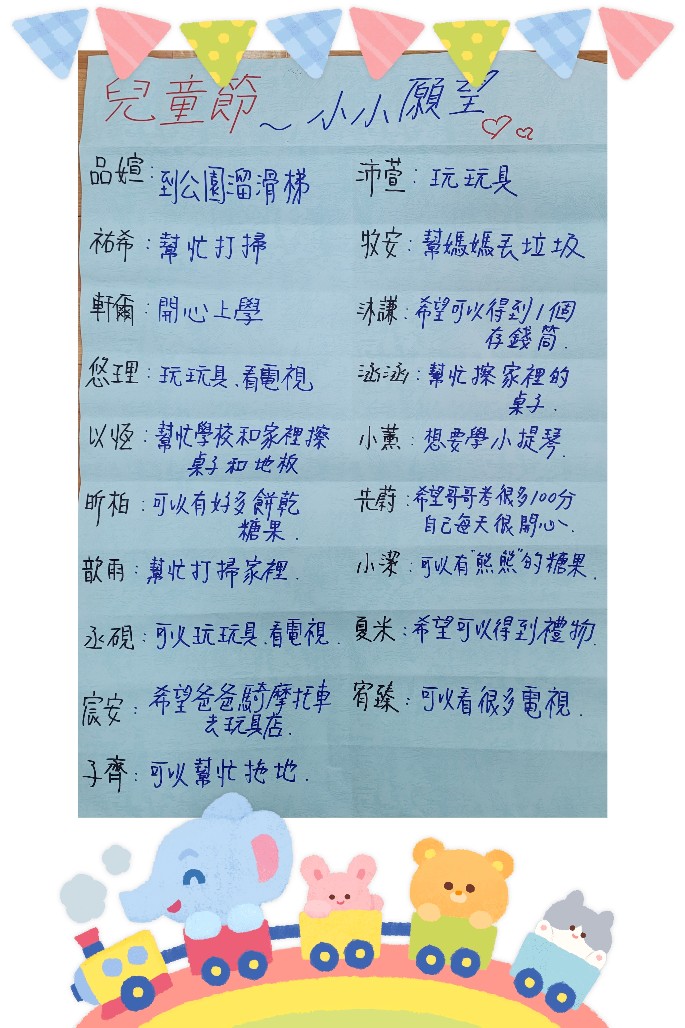 兒童節~小小願望
品媗:到公園溜滑梯
沛萱:玩玩具
祐希:幫忙打掃
牧安:幫媽媽丟垃圾
軒爾:開心上學
沐謙:希望可以得到1個
存錢筒.
悠理:玩玩具、看電視
涵涵:幫忙擦家裡的
桌子.
以恆:幫忙學校和家裡擦
桌子和地板
小薰:想要學小提琴.
昕柏:可以有好多餅乾
糖果.
先蔚:希望哥哥考很多100分
自己每天很開心.
歆雨:幫忙打掃家裡.
小潔:可以有"熊熊"的糖果.
丞硯:可以玩玩具.看電視.
夏米:希望可以得到禮物.
宸安:希望爸爸騎摩托車
去玩具店.
宥臻:可以看很多電視.
子齊:可以幫忙拖地.